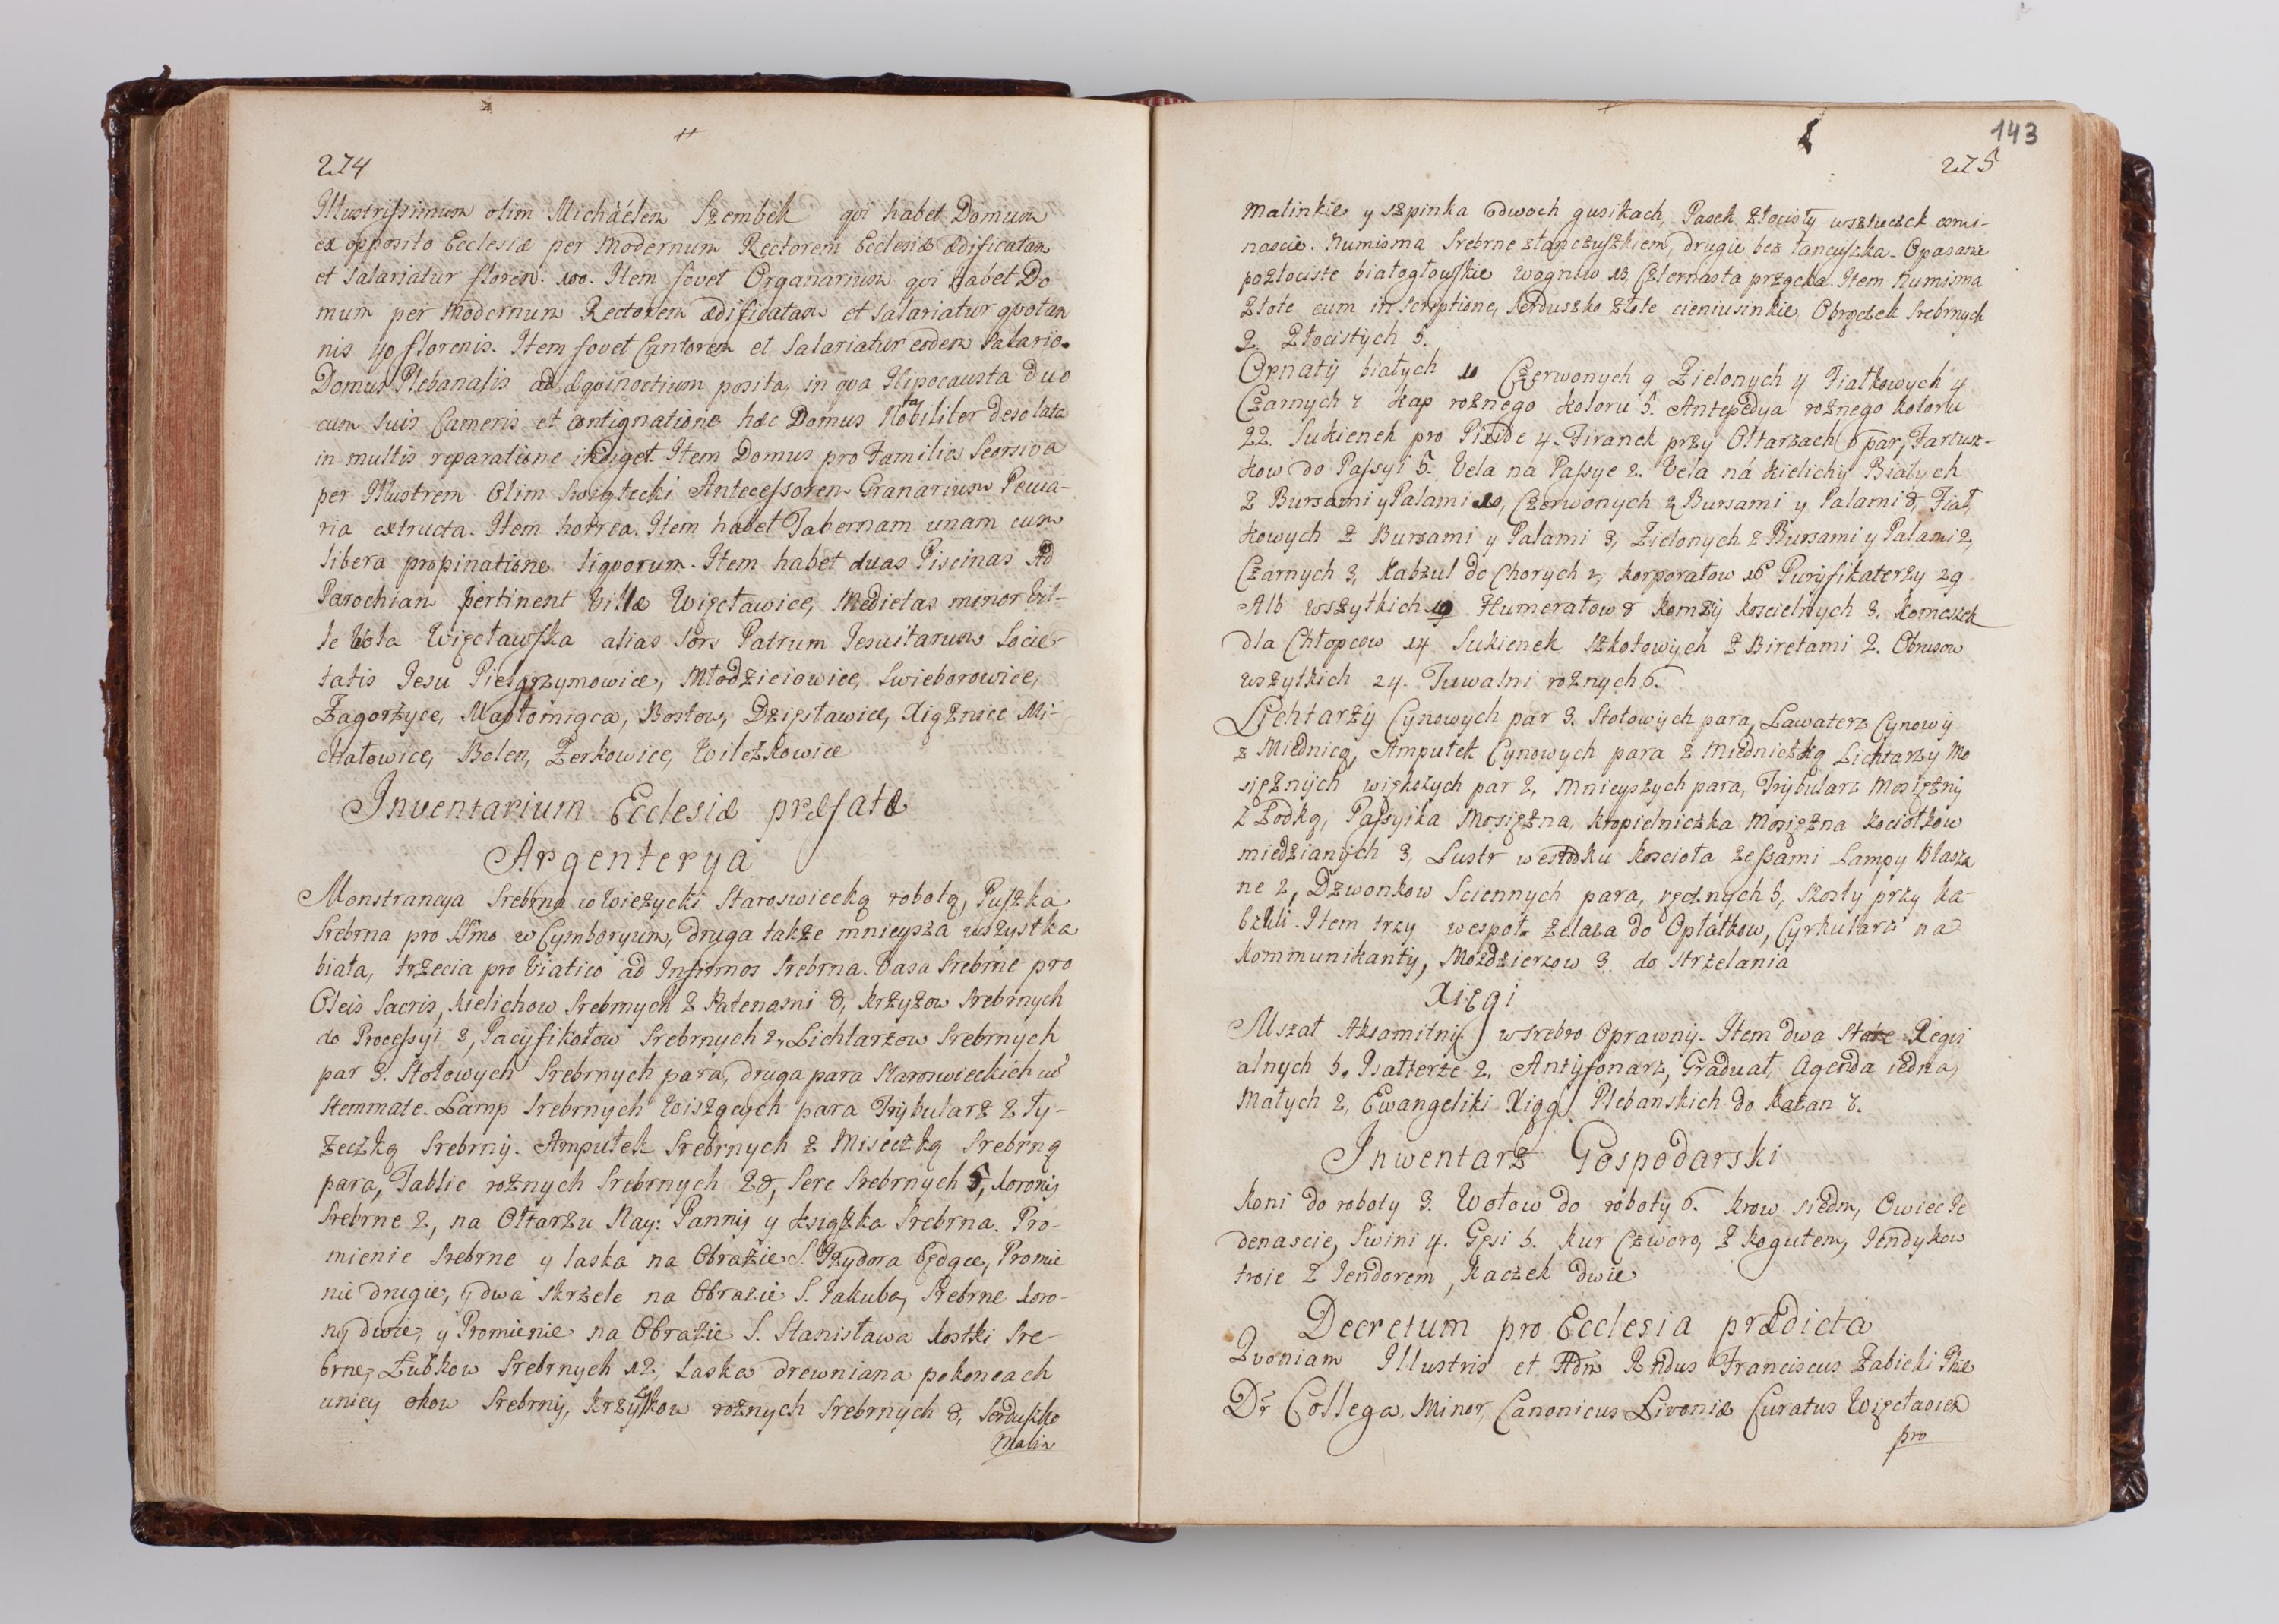 274
Illustrissimum olim Michäélem Szembek qvi habet Domum
ex opposito Ecclesiæ per Modernum Rectorem Ecclesiæ ædificatam
et salariatur floren: 100. Item fovet Organarium qvi habet Do
mum per Modernum Rectorem ædificatam et salariatur qvotan
nis 40 florenis. Item fovet Cantorem et Salariatur eodem Salario.
Domus Plebanalis ad Æqvinoctium posita, in qva Hipocausta duo
cum suis Cameris et contignatione hæc Domus Notabiliter desolata
in multis reparatione indiget. Item Domus pro Familia Seorsiva
per Illustrem Olim Swiątecki Antecessorem Granarium Pewa-
ria extructa. Item horrea. Item habet Tabernam unam cum
libera propinatione liqvorum. Item habet duas Piscinas Ad
Parochiam pertinent Villæ Więcławice, Medietas minor Vil-
le Wola Więcławska alias Sors Patrum Iesuitarum Socie-
tatis Iesu Pielgrzymowice, Młodzieiowice, Swieborowice,
Zagorzyce, Masłomiąca, Bostow, Dzięsławice, Xiąznice Mi-
chałowice, Bolen, Zerkowice, Wilczkowice
Inventarium Ecclesiæ præfatæ
Argenterya
Monstrancya Srebrna w Wieżycki Staroswiecką robotą, Puszka
Srebrna pro SSmo w Cymboryum, druga także mnieysza wszystka
biała, trzecia pro Viatico ad Infirmos Srebrna. Vasa Srebrne pro
Oleis Sacris, Kielichow Srebrnych z Patenami 8, Krzyżow Srebrnych
do Processyi 3, Pacyfikołow Srebrnych 2, Lichtarzow Srebrnych
par 3. Stołowych Srebrnych para, druga para Staroswieckich cū
Stemmate. Lamp Srebrnych Wiszących para Trybularz z Ły-
żeczką Srebrny. Ampułek Srebrnych z Miseczką Srebrną
para, Tablic rożnych Srebrnych 28, Serc Srebrnych 5, Korony
Srebrne 2, na Ołtarzu Nay: Panny y Książka Srebrna. Pro-
mienie Srebrne y laska na Obrazie S. Izydora będące, Promie
nie drugie, y dwa skrzele na Obrazie S. Iakuba, Srebrne Koro-
ny dwie, y Promienie na Obrazie S. Stanisława Kostki Sre-
brne, Ząbkow Srebrnych 12, Laska drewniana po koncach
uniey okow Srebrny, Krzyżykow rożnych Srebrnych 8, Serduszko
Malin
143
275
Malinkie y szpinka o dwoch gusikach, Pasek złocisty w sztuczek osmi-
nascie. Numisma Srebrne z łanczuszkiem, drugie bez łancuszka. Opasanie
pozłociste białogłowskie w ogniw 13, Czternasta przączka. Item Numisma
złote cum inscriptione, Serduszko złote cieniusinkie, Obrączek Srebrnych
2. Złocistych 5.
Ornaty białych 10 Czerwonych 9 Zielonych 4 Fiałkowych 4
Czarnych 7 Kap rożnego koloru 5. Antepedya rożnego koloru
22. Sukienek pro Pixide 4. Firanek przy Ołtarzach 6 par, Fartusz-
kow do Passyi 5. Vela na Passye 2. Vela ná Kielichy Białych
z Bursami y Palami 10, Czerwonych z Bursami y Palami 8, Fiał,
kowych z Bursami y Palami 3, Zielonych z Bursami y Palami 2,
Czarnych 3, Kabzul do Chorych 2, Korporałow 16 Puryfikaterzy 29
Alb wszytkich 19 Humerałow 8 Komży koscielnych 3. Komeszek
dla Chłopcow 14 Sukienek szkołowych z Biretami 2. Obrusow
wszytkich 24. Tuwalni rożnych 6.
Lichtarzy Cynowych par 3. Stołowych para, Lawaterz Cynowy
z Miednicą, Ampułek Cynowych para z Miedniczką Lichtarzy Mo
siężnych większych par 2, Mnieyszych para, Trybularz Mosiężny
z Łodką, Passyika Mosiężna, Kropielniczka Mosiężna Kociołkow
miedzianych 3, Lustr w esrodku Koscioła zessami Lampy Blasza
ne 2, Dzwonkow Sciennych para, ręcznych 5, skosty przy ka-
bzuli. Item trzy wespoł żelaza do Opłatkow, Cyrkularz na
Kommunikanty, Mozdzierzow 3. do strzelania
Xięgi
Mszał Aksamitny w srebro Oprawny. Item dwa stare Regi
alnych 5. Psałterze 2. Antyfonarz, Graduał, Agenda iedna,
Małych 2, Ewangeliki Xiąg Plebanskich do Kazan 7.
Inwentarz Gospodarski
Koni do roboty 3. Wołow do roboty 6. Krow siedm, Owiec Ie
denascie, Swini 4. Gęsi 5. Kur czworo, z kogutem, Iendykow
troie z Iendorem, Kaczek dwie
Decretum pro Ecclesia prædicta
Qvoniam Illustris et Adm Rndus Franciscus Żabicki Phiæ
Dr Collega Minor, Canonicus Livoniæ Curatus Więcławicen
pro